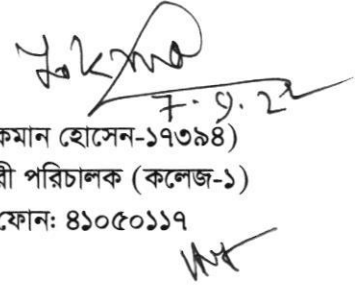 7.9.22
কমান হোসেন-১৭৩৯৪)
রী পরিচালক (কলেজ-১)
ফোনঃ ৪১০৫০১১৭